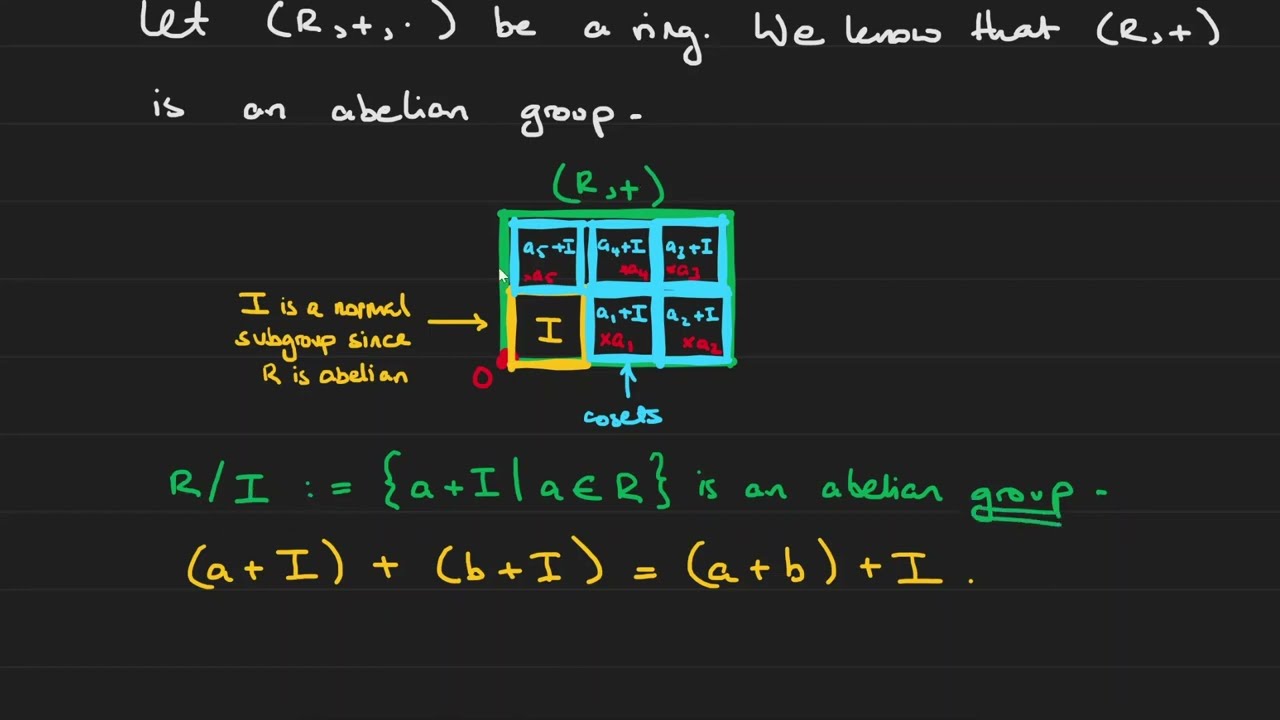 Let (R,+,·) be a ring. We know that (R,+)
is an abelian group.
(R,+)
a₅+I a₄+I a₃+I
×a₅ ×a₄ ×a₃
I is a normal
subgroup since
R is abelian
I
a₁+I a₂+I
×a₁ ×a₂
0
cosets
R/I := {a+I | a∈R} is an abelian group.
(a+I) + (b+I) = (a+b)+I.